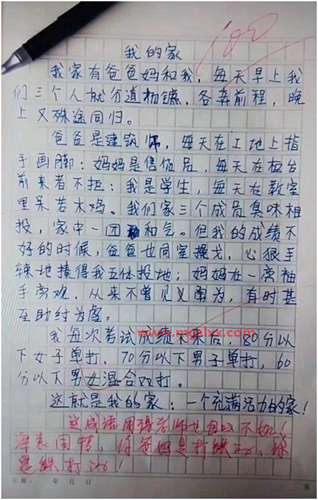 我的家
我家有爸爸妈和我，每天早上我
们三个人就分道扬镳，各奔前程，晚
上又殊途同归。
爸爸是建筑师，每天在工地上指
手画脚；妈妈是售货员，每天在柜台
前来者不拒；我是学生，每天在教室
里呆若木鸡。我们家三个成员臭味相
投，家中一团和气。但我的成绩不
好的时候，爸爸也同室操戈，心狠手
辣地揍得我五体投地；妈妈在一旁袖
手旁观，从来不曾见义勇为，有时甚
至助纣为虐。
我每次考试成绩下来后，80分以
下女子单打，70分以下男子单打，60
分以下男女混合双打。
这就是我的家：一个充满活力的家！
这成语用得老师也自以不如！
深表同情，你爸妈是打铁的，你
是铁打的！